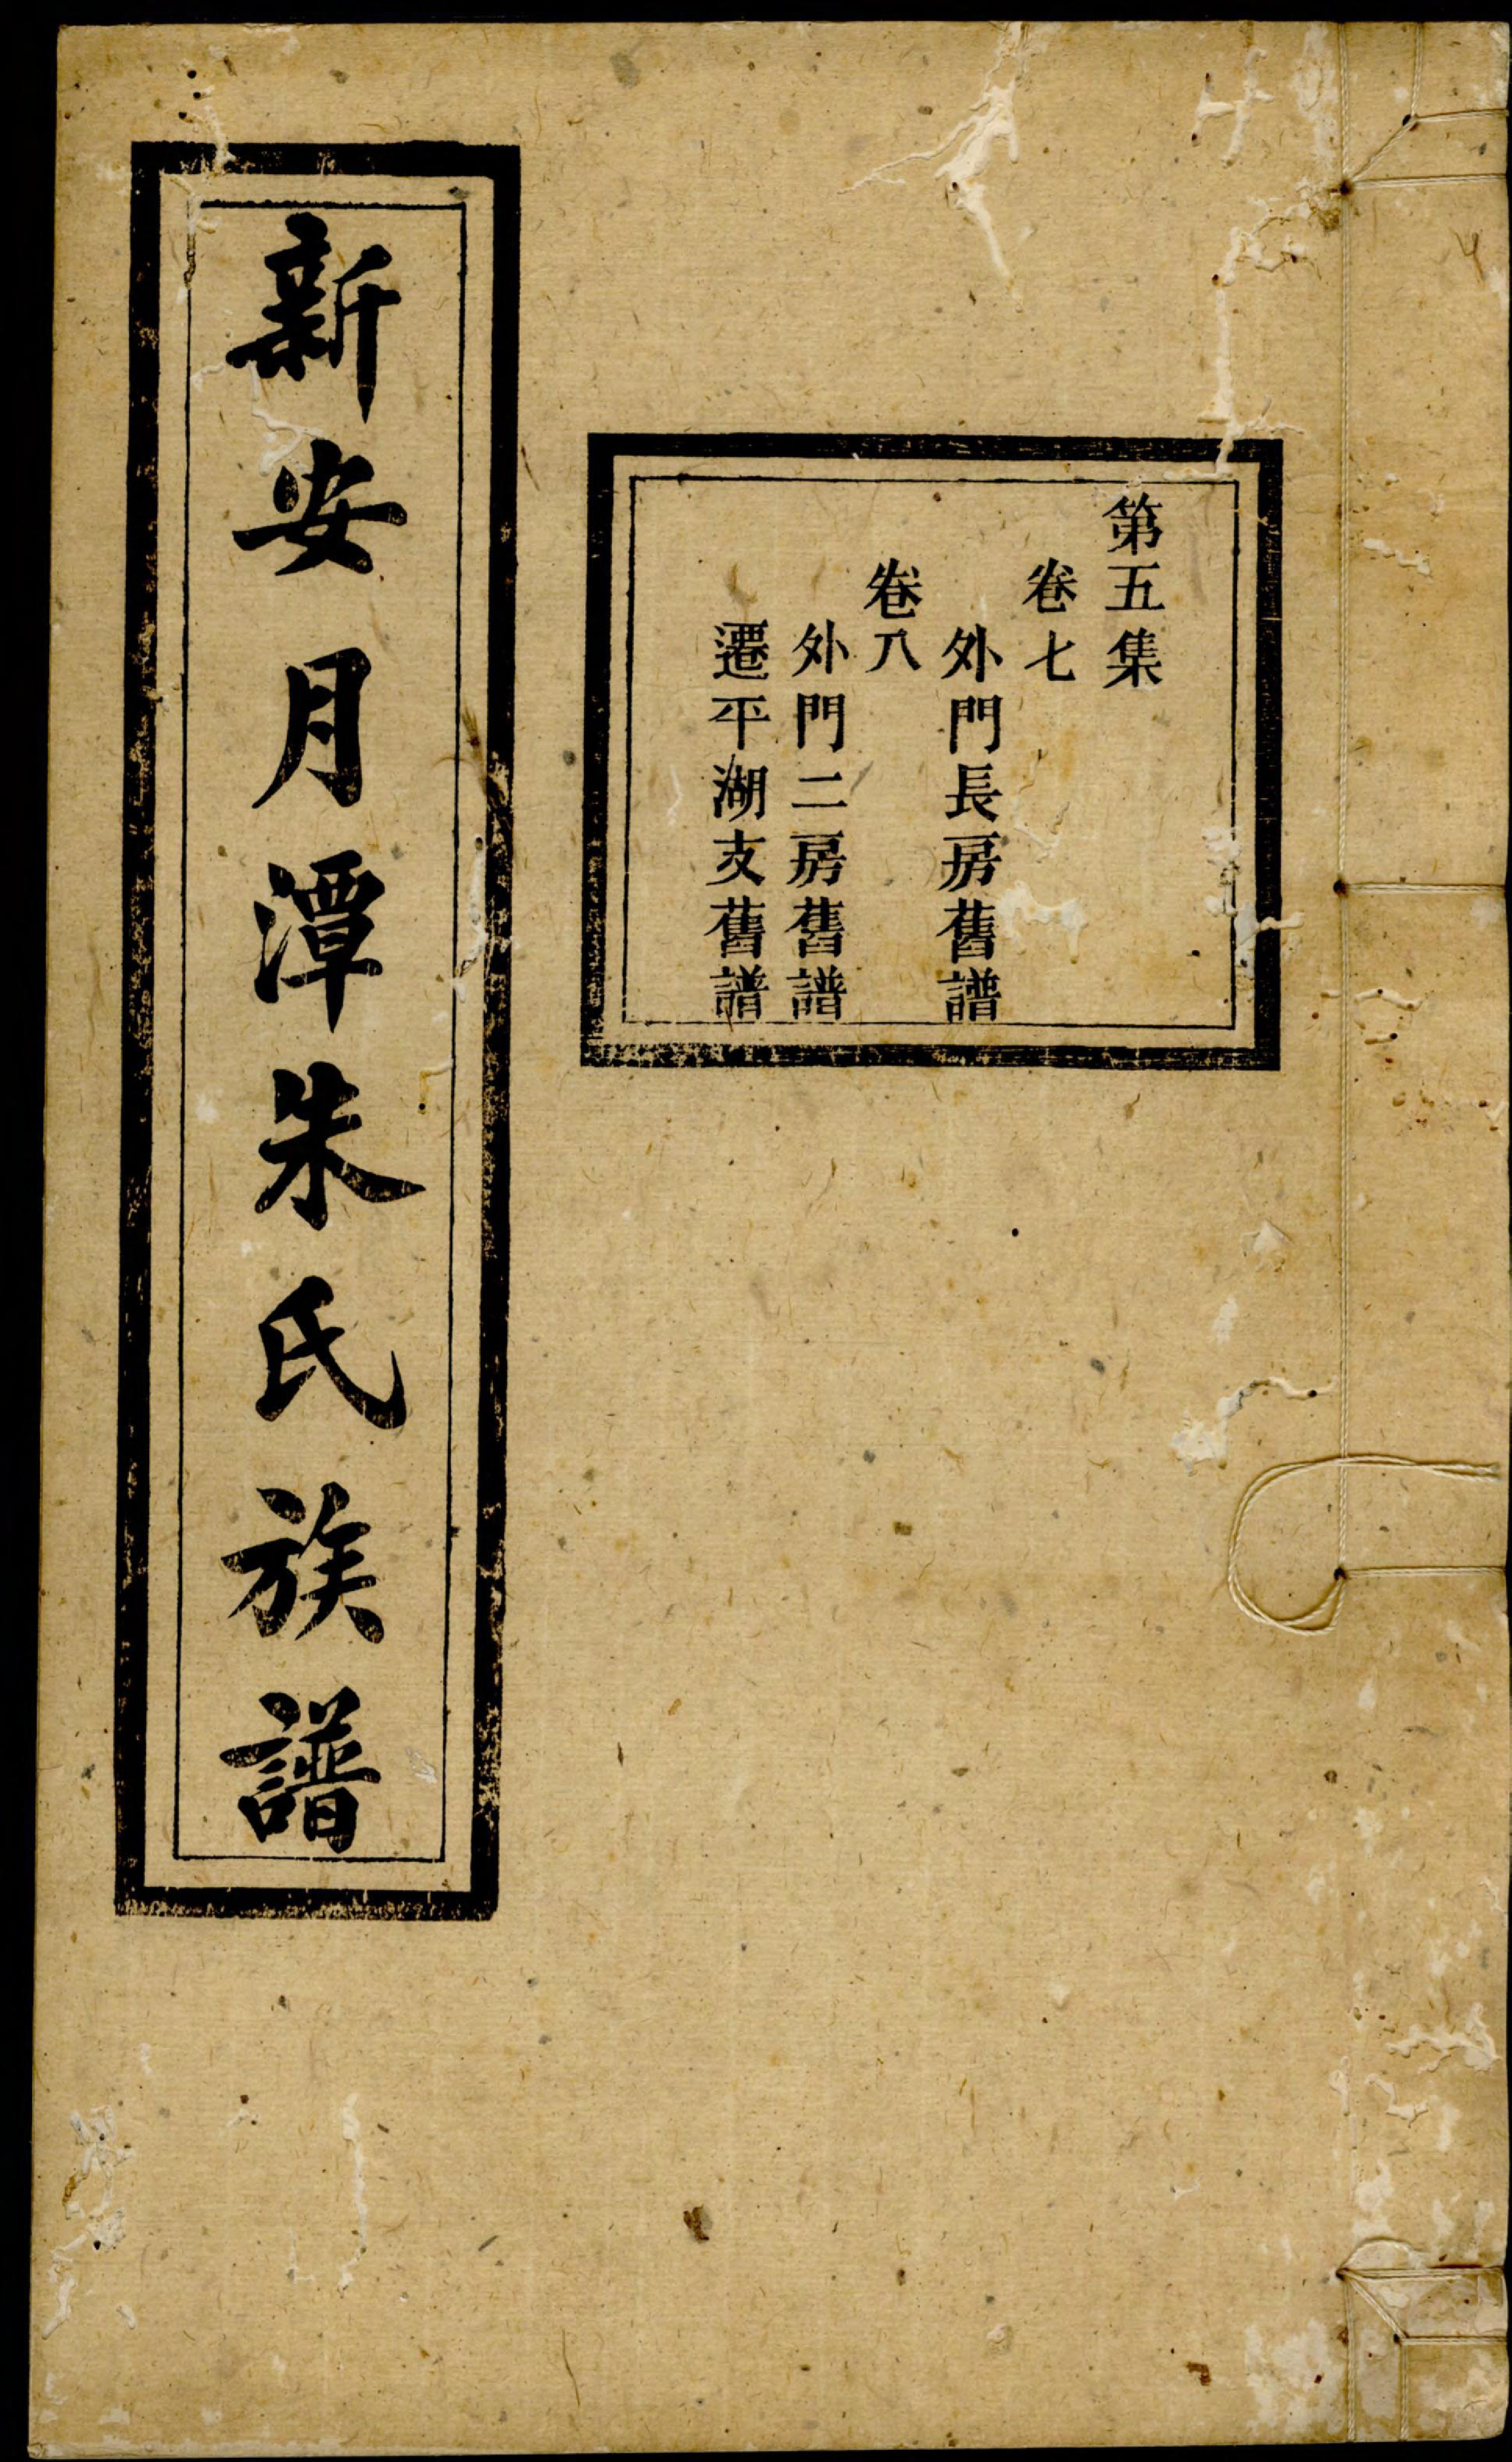 第五集
卷七
外門長房舊譜
卷八
外門二房舊譜
遷平湖支舊譜
新安月潭朱氏族譜